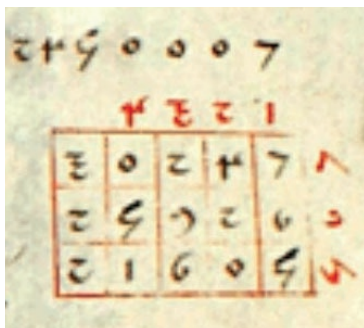 2450007
4 3 2 1
3 0 2 4 7 7
2 5 9 2 6 6
2 1 6 0 5 5